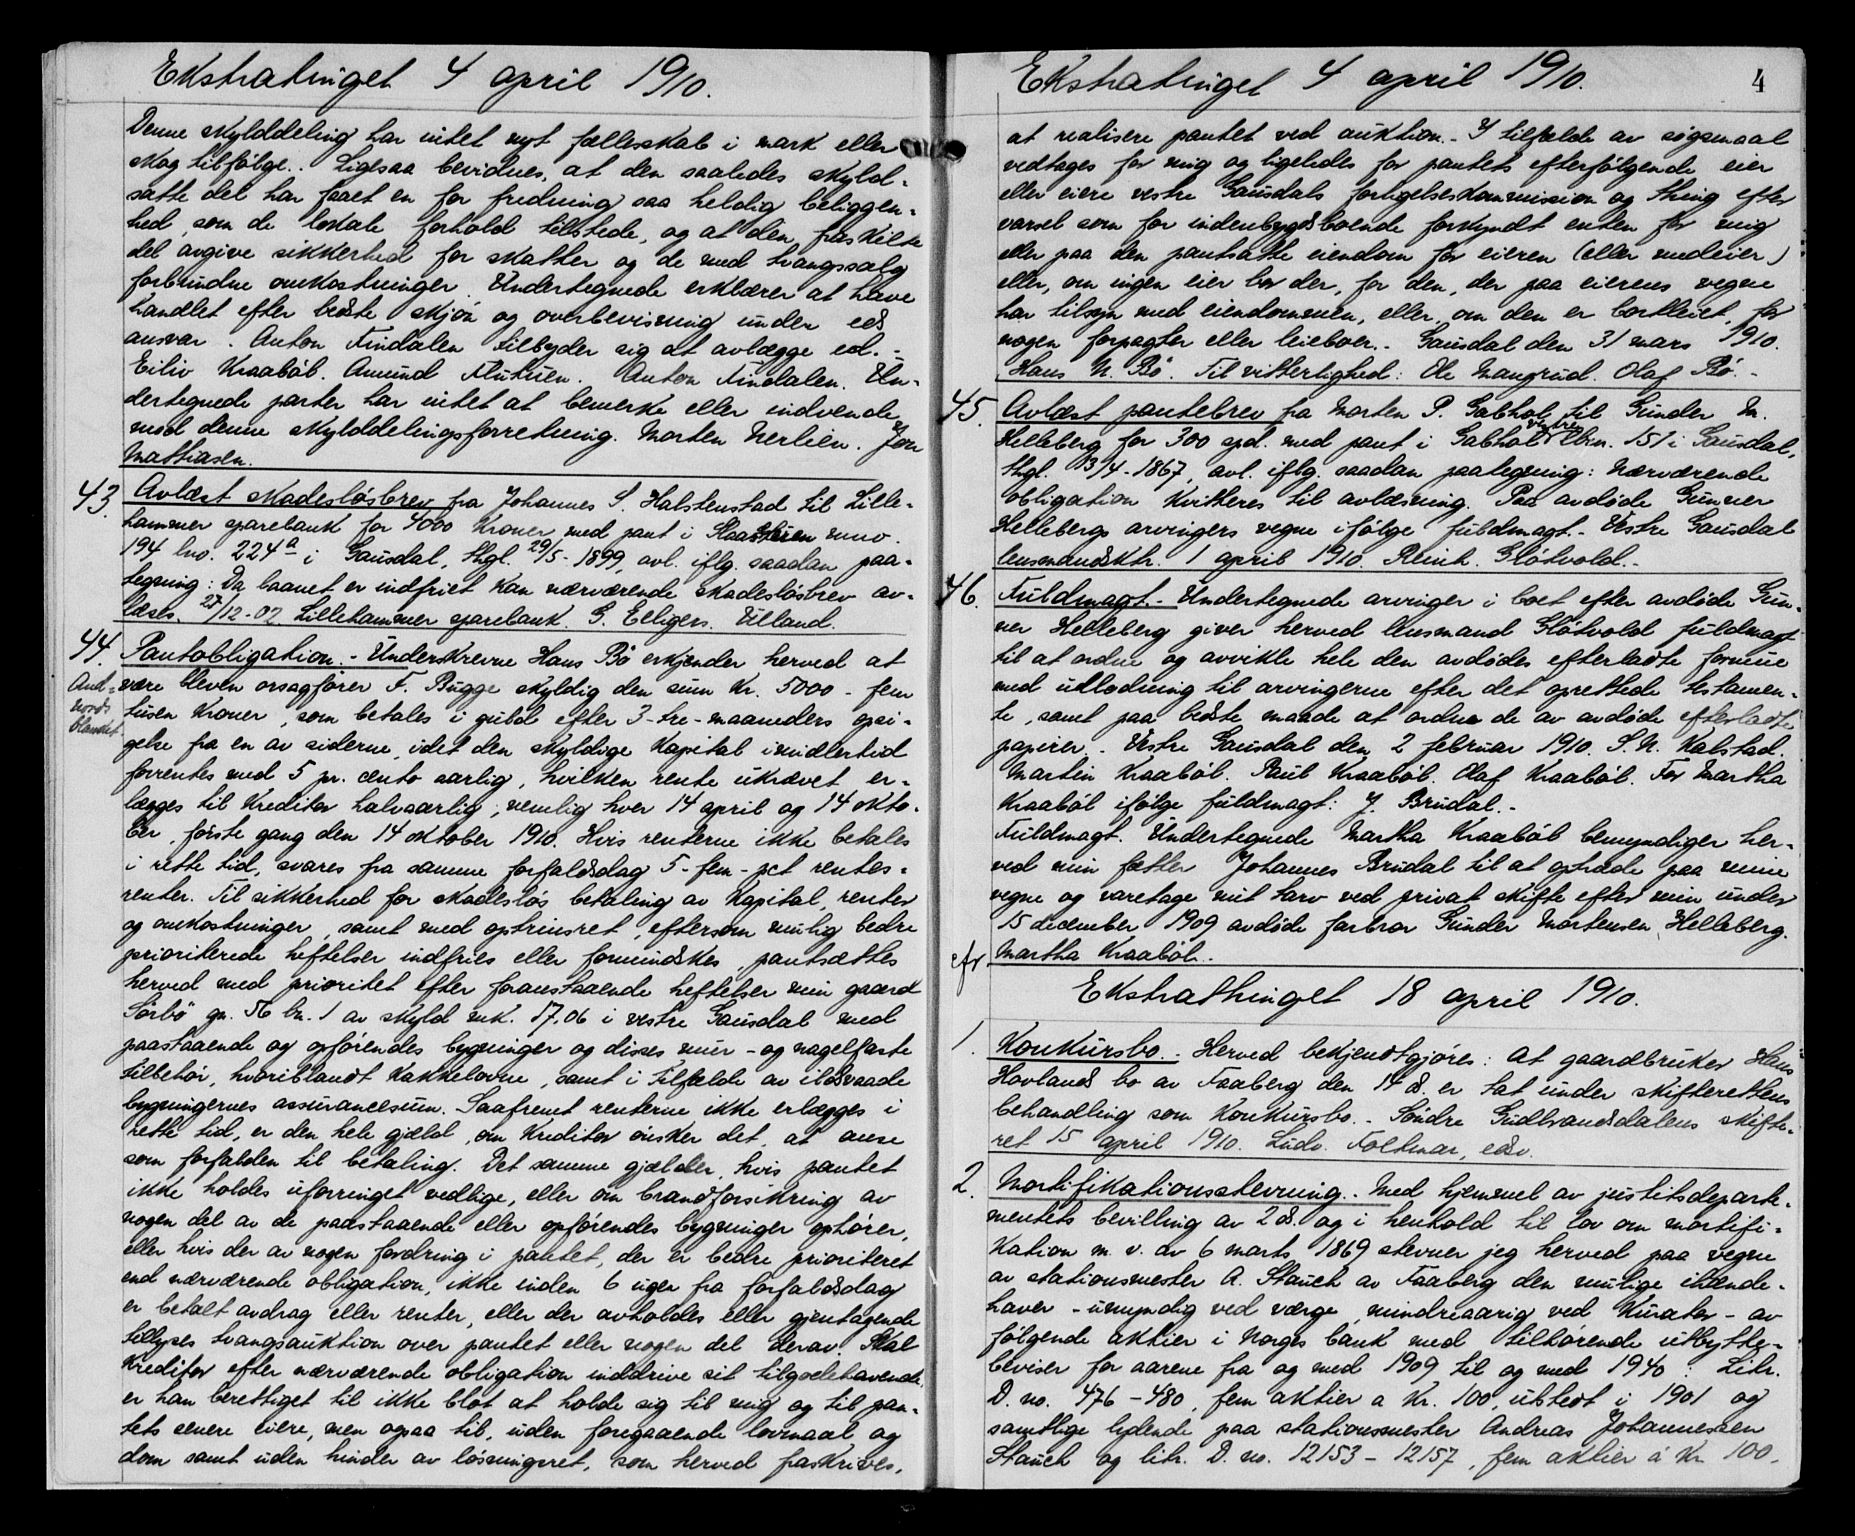 Ekstratinget 4 april 1910.
Denne skylddeling har intet nyt fællesskab i mark eller
skog tilfølge. Ligesaa bevidnes, at den saaledes skyld-
satte del har faaet en for fredning saa heldig beliggen-
hed, som de lokale forhold tilstede, og at den fraskilte
del avgive sikkerhed for skatter og de med tvangssalg
forbundne omkostninger. Undertegnede erklærer at have
handlet efter bedste skjøn og overbevisning under eds
ansvar. Anton Findalen tilbyder sig at avlægge ed. -
Eiliv Kraabøl. Amund Flutuen. Anton Findalen. Un-
dertegnede parter har intet at bemerke eller indvende
mod denne skylddelingsforretning. Morten Nerlien. Jon
Mathiasen.
43. Avlæst skadesløsbrev fra Johannes S. Halstenstad til Lille-
hammer sparebank for 4000 kroner med pant i Slaastuen mno.
194 lno. 224a i Gausdal, thgl. 29/5-1899, avl. iflg. saadan paa-
tegning: Da laanet er indfriet kan nærværende skadesløsbrev av-
læses. 27/12-07 Lillehammer sparebank. G. Elligers. Ulland.
44. Pantobligation. - Underskrevne Hans Bø erkjender herved at
And-
vords
blanket
være bleven orsagfører F. Bugge skyldig den sum kr. 5000 - fem
tusen kroner, som betales i guld efter 3-tre-maaneders opsi-
gelse fra en av siderne, idet den skyldige kapital imidlertid
forrentes med 5 pr. cento aarlig, hvilken rente ukrævet er-
lægges til kreditor halvaarlig, nemlig hver 14 april og 14 okto-
ber, første gang den 14 oktober 1910. Hvis renterne ikke betales
i rette tid, svares fra samme forfaldsdag 5-fem-pct rentes-
renter. Til sikkerhed for skadesløs betaling av kapital, renter
og omkostninger, samt med optrinsret, eftersom mulig bedre
prioriterede heftelser indfries eller formindskes, pantsættes
herved med prioritet efter foranstaaende heftelser min gaard
Sørbø gn. 56 bn. 1 av skyld mk. 17.06 i vestre Gausdal med
paastaaende og opførendes bygninger og disses mur- og nagelfaste
tilbehør, hvoriblandt kakkelovne, samt i tilfælde av ildsvaade
bygningernes assurancesum. Saafremt renterne ikke erlægges i
rette tid, er den hele gjæld, om kreditor ønsker det, at anse
som forfalden til betaling. Det samme gjælder, hvis pantet
ikke holdes uforringet vedlige, eller om brandforsikring av
nogen del av de paastaaende eller opførendes bygninger ophører,
eller hvis der av nogen fordring i pantet, der er bedre prioriteret
end nærværende obligation, ikke inden 6 uger fra forfaldsdag
er betalt avdrag eller renter, eller der avholdes eller gjentagende
tillyses tvangsauktion over pantet eller nogen del derav. Skal
kreditor efter nærværende obligation inddrive sit tilgodehavende,
er han berettiget til ikke blot at holde sig til mig og til pan-
tets senere eiere, men ogsaa til, uden foregaaende lovmaal og
dom samt uden hinder av løsningsret, som herved fraskrives,
Ekstratinget 4 april 1910.
4
at realisere pantet ved auktion. - I tilfælde av søgsmaal
vedtages for mig og ligeledes for pantets efterfølgende eier
eller eiere vestre Gausdals forligelseskommission og thing efter
varsel som for indenbygdsboende forkyndt enten for mig
eller paa den pantsatte eiendom for eieren (eller medeier)
eller, om ingen eier bor der, for den, der paa eierens vegne
har tilsyn med eiendommen, eller, om den er bortleiet, for
nogen forpagter eller leieboer. - Gausdal den 31 mars 1910.
Hans N. Bø. Til vitterlighed: Ole Mangrud. Olaf Bø. -
45. Avlæst pantebrev fra Morten P. Gabhol til Gunder M.
Helleberg for 300 spd. med pant i Gabhol vestre lbrn. 151 i Gausdal,
thgl. 13/4-1867, avl. iflg saadan paategning: Nærværende
obligation kvitteres til avlæsning. Paa avdøde Gunner
Hellebergs arvingers vegne ifølge fuldmagt. - Vestre Gausdal
lensmandsktr. 1 april 1910. Reinh. Gløtvold. -
46. Fuldmagt. - Undertegnede arvinger i boet efter avdøde Gun-
ner Helleberg giver herved lensmand Gløtvold fuldmagt
til at ordne og avvikle hele den avdødes efterladte formue
med utlodning til arvingerne efter det oprettede testamen-
te, samt paa bedste maade at ordne de av avdøde efterladte
papirer. Vestre Gausdal den 2 februar 1910. S. N. Kalstad.
Martin Kraabøl. Paul Kraabøl. Olaf Kraabøl. For Martha
Kraabøl ifølge fuldmagt: J. Brudal. -
Fuldmagt. Undertegnede Martha Kraabøl bemyndiger her-
ved min fætter Johannes Brudal til at optræde paa mine
vegne og varetage mit tarv ved privat skifte efter min under
15 december 1909 avdøde farbror Gunder Mortensen Helleberg.
Martha Kraabøl. -
Ekstrathinget 18 april 1910.
1. Konkursbo. - Herved bekjendtgjøres: At gaardbruker Hans
Hovlands bo av Faaberg den 14 ds. er tat under skifterettens
behandling som konkursbo. - Søndre Gudbrandsdalens skifte-
ret 15 april 1910. Ludv. Foltmar, edsv.
2. Mortifikationsstevning. - Med hjemmel av justitsdeparte-
mentets bevilling av 2 ds. og i henhold til lov om mortifi-
kation m. v. av 6 marts 1869 stevner jeg herved paa vegne
av stationsmester A. Stauch av Faaberg den mulige ihænde-
haver - umyndig ved værge, mindreaarig ved kurator - av
følgende aktier i Norges bank med tilhørende utbytte-
beviser for aarene fra og med 1909 til og med 1940: Litr.
D. no. 476-480, fem aktier a kr. 100, utstedt i 1901 og
samtlige lydende paa stationsmester Andreas Johannessen
Stauch og litr. D. no. 12153 - 12157, fem aktier á kr 100,